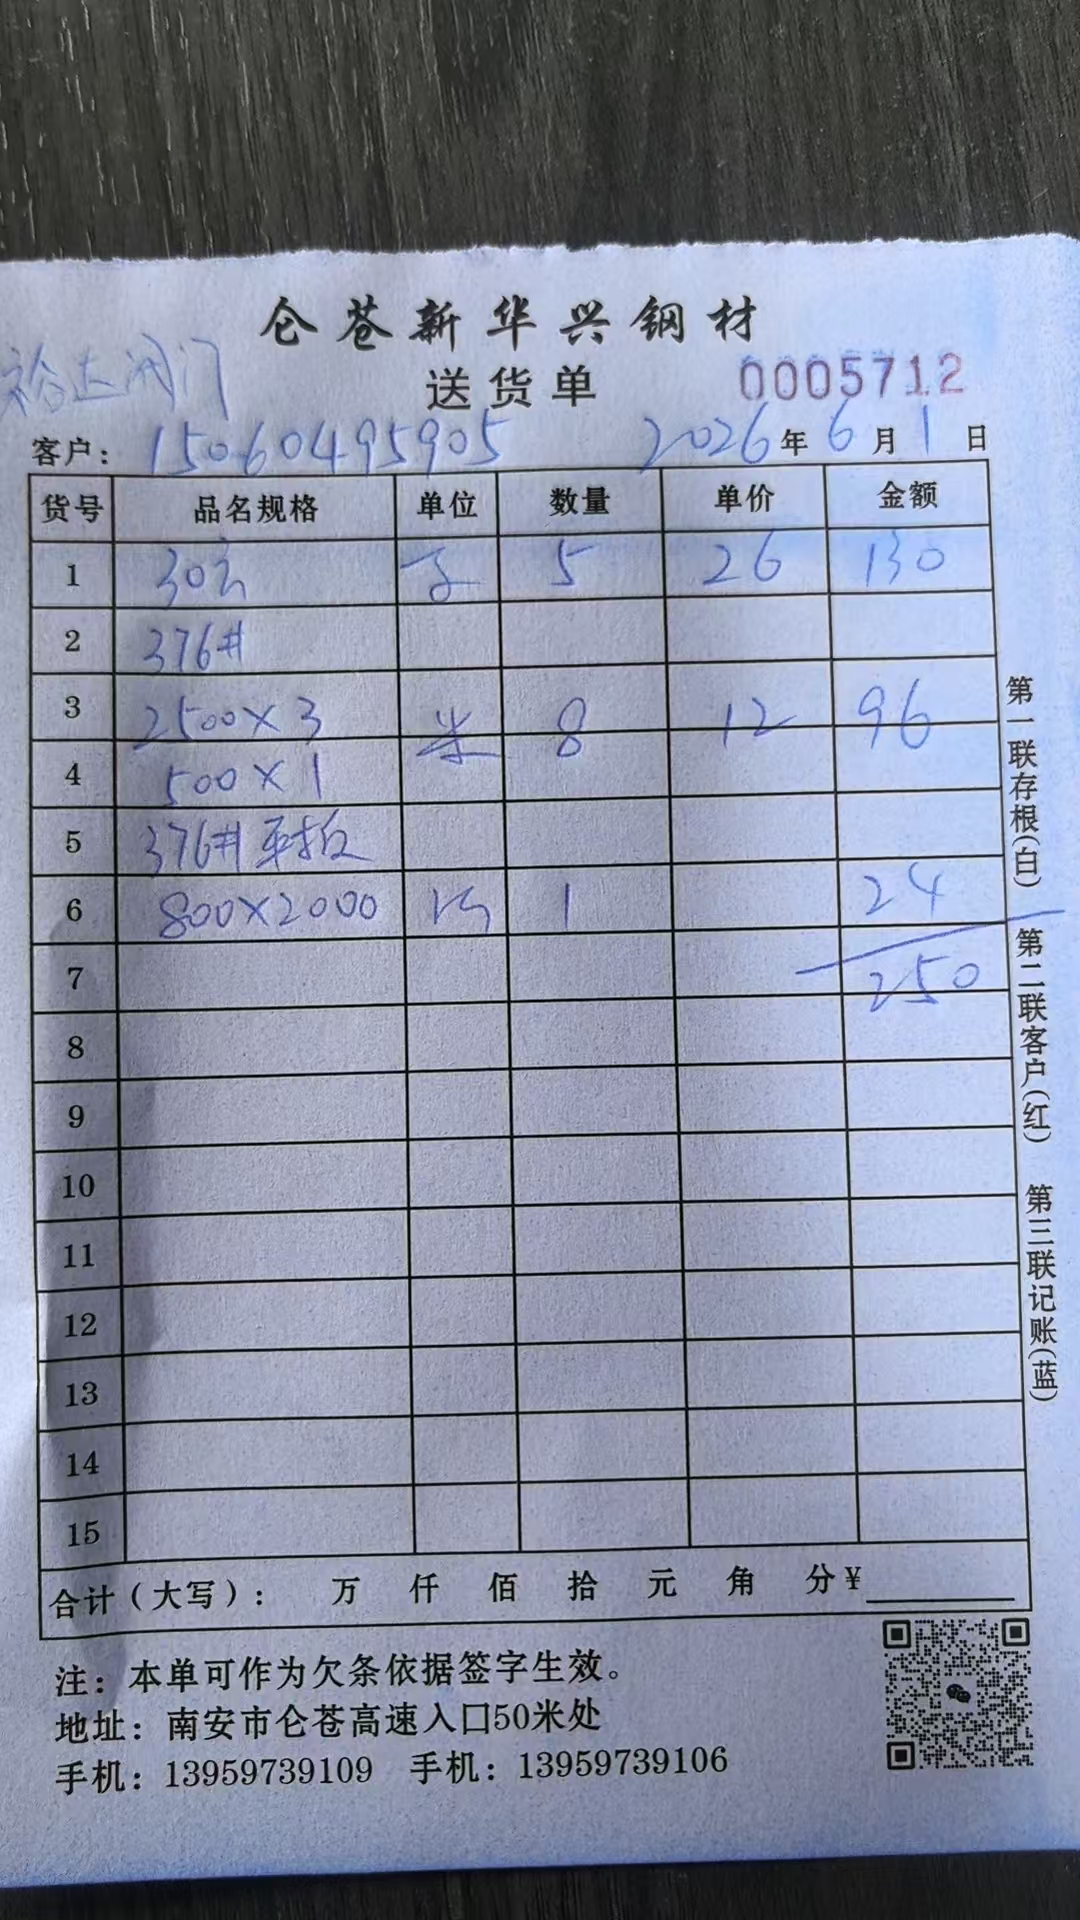 仑苍新华兴钢材
裕达阀门
送货单 0005712
客户: 15060495905 2026年6月1日
货号 品名规格 单位 数量 单价 金额
1 5 26 130
2 376#
3 2500×3 米 8 12 96
4 500×1
5 376#平板
6 800×2000 1 24
7 250
8
9
10
11
12
13
14
15
合计(大写): 万 仟 佰 拾 元 角 分¥
注: 本单可作为欠条依据签字生效。
地址: 南安市仑苍高速入口50米处
手机: 13959739109 手机: 13959739106
第一联存根(白) 第二联客户(红) 第三联记账(蓝)